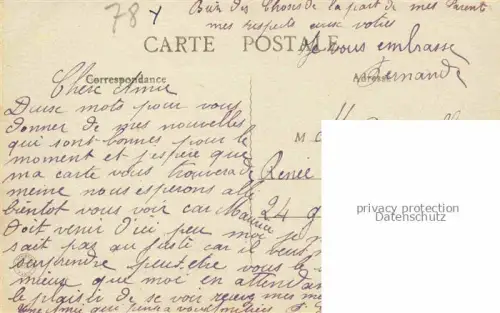 78
Bien des Choses de la part de mes Parents
mes respects aux votres
CARTE POSTALE
Je vous embrasse
Fernande
Correspondance
Adresse
Chère Amie
Deux mots pour vous
donner de mes nouvelles
qui sont bonnes pour le
moment et j'espère que
ma carte vous trouvera de
meme nous esperons allé
bientot vous voir car Maurice
doit venir d'ici peu moi je
sait pas au juste car il veus
surprendre peus-être vous le
mieux que moi en attendant
le plaisir de se voir recevez mes
M
Renée
24
privacy protection
Datenschutz